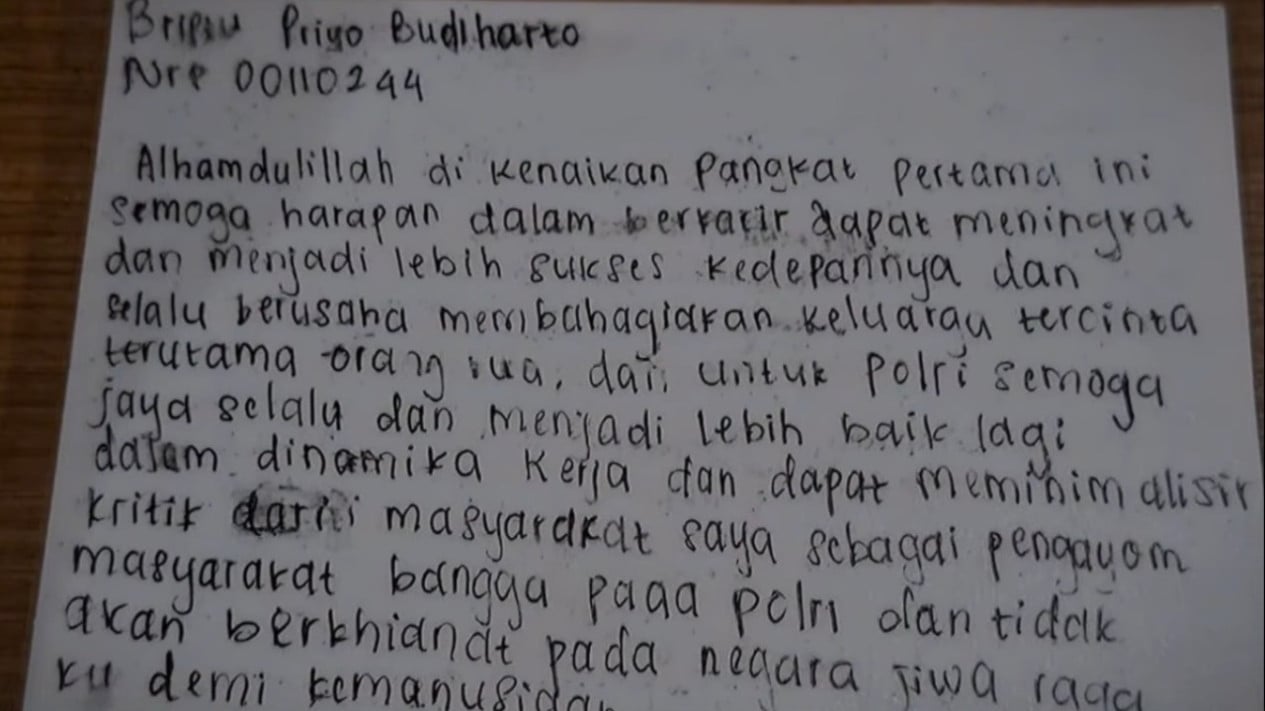 Briptu Priyo Budiharto
Nrp 00110244
Alhamdulillah di kenaikan Pangkat Pertama ini
semoga harapan dalam berkarir dapat meningkat
dan menjadi lebih sukses kedepannya dan
selalu berusaha membahagiakan keluarga tercinta
terutama orang tua, dan untuk Polri semoga
jaya selalu dan menjadi lebih baik lagi
dalam dinamika Kerja dan dapat meminimalisir
kritik dari masyarakat saya sebagai pengayom
masyarakat bangga pada polri dan tidak
akan berkhianat pada negara jiwa raga
ku demi kemanusiaan